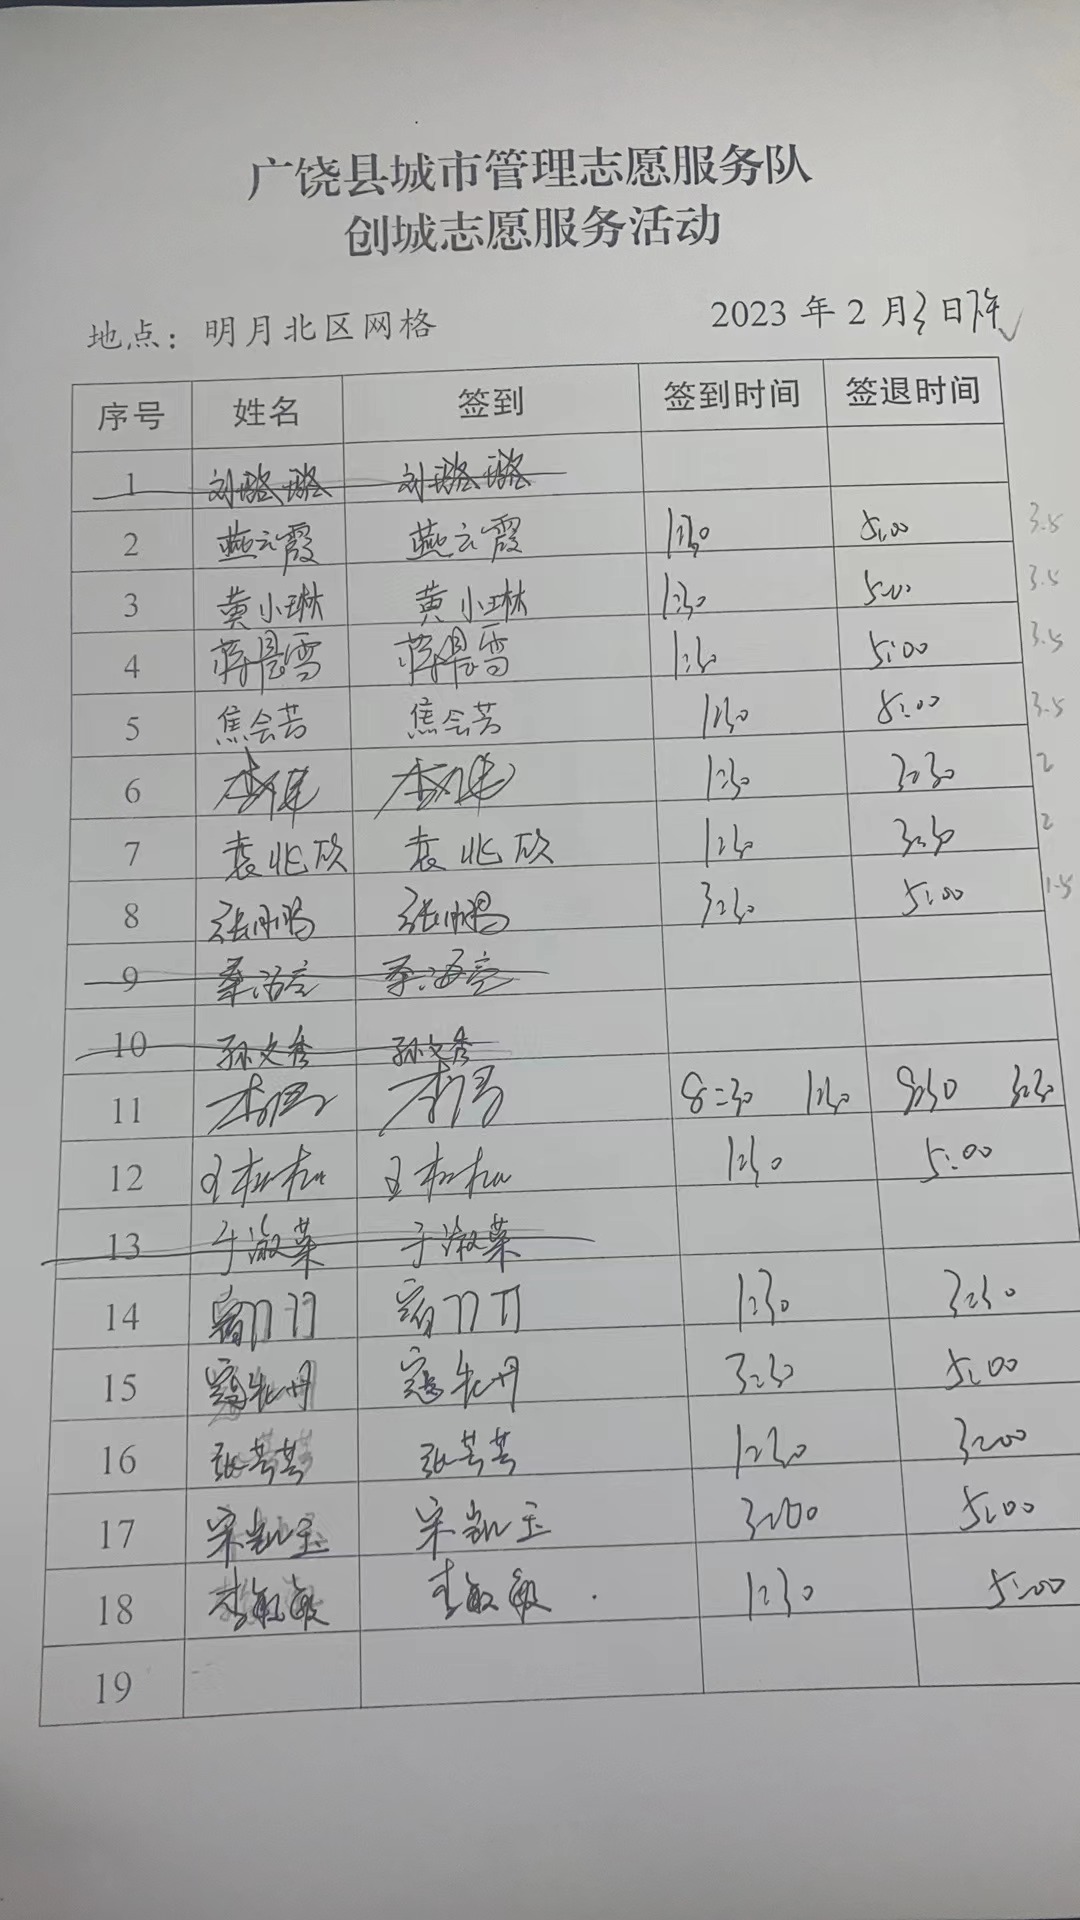 广饶县城市管理志愿服务队
创城志愿服务活动
地点：明月北区网格 2023 年 2 月 3 日 下午
序号 姓名 签到 签到时间 签退时间
1 刘璐璐 刘璐璐
2 燕云霞 燕云霞 1:30 5:00 3.5
3 黄小琳 黄小琳 1:30 5:00 3.5
4 蒋晨雪 蒋晨雪 1:30 5:00 3.5
5 焦会芳 焦会芳 1:30 5:00 3.5
6 李 1:30 3:30 2
7 袁兆欣 袁兆欣 1:30 3:30 2
8 张 张 3:30 5:00 1.5
9 秦海亮 秦海亮
10 孙文秀 孙文秀
11 李 李 8:30 1:30 9:30 3:30
12 王松松 王松松 1:30 5:00
13 于淑菜 于淑菜
14 1:30 3:30
15 寇牡丹 寇牡丹 3:30 5:00
16 张芸芸 张芸芸 1:30 3:00
17 宋凯玉 宋凯玉 3:00 5:00
18 李敏敏 李敏敏 1:30 5:00
19